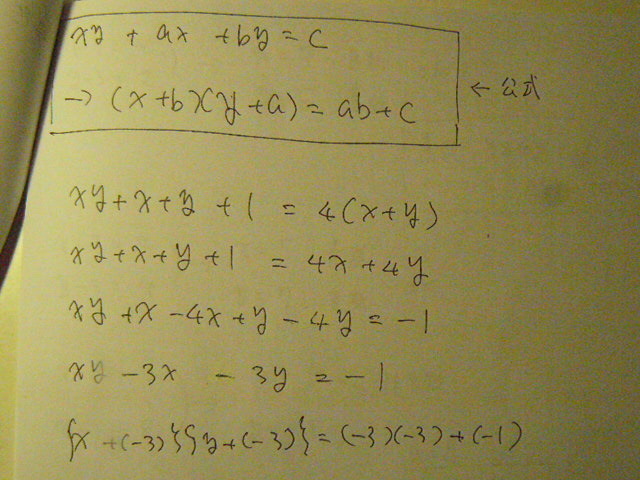 xy + ax + by = c
→ (x+b)(y+a) = ab+c
← 公式
xy+x+y+1 = 4(x+y)
xy+x+y+1 = 4x+4y
xy+x-4x+y-4y = -1
xy-3x-3y = -1
{x+(-3)}{y+(-3)} = (-3)(-3)+(-1)